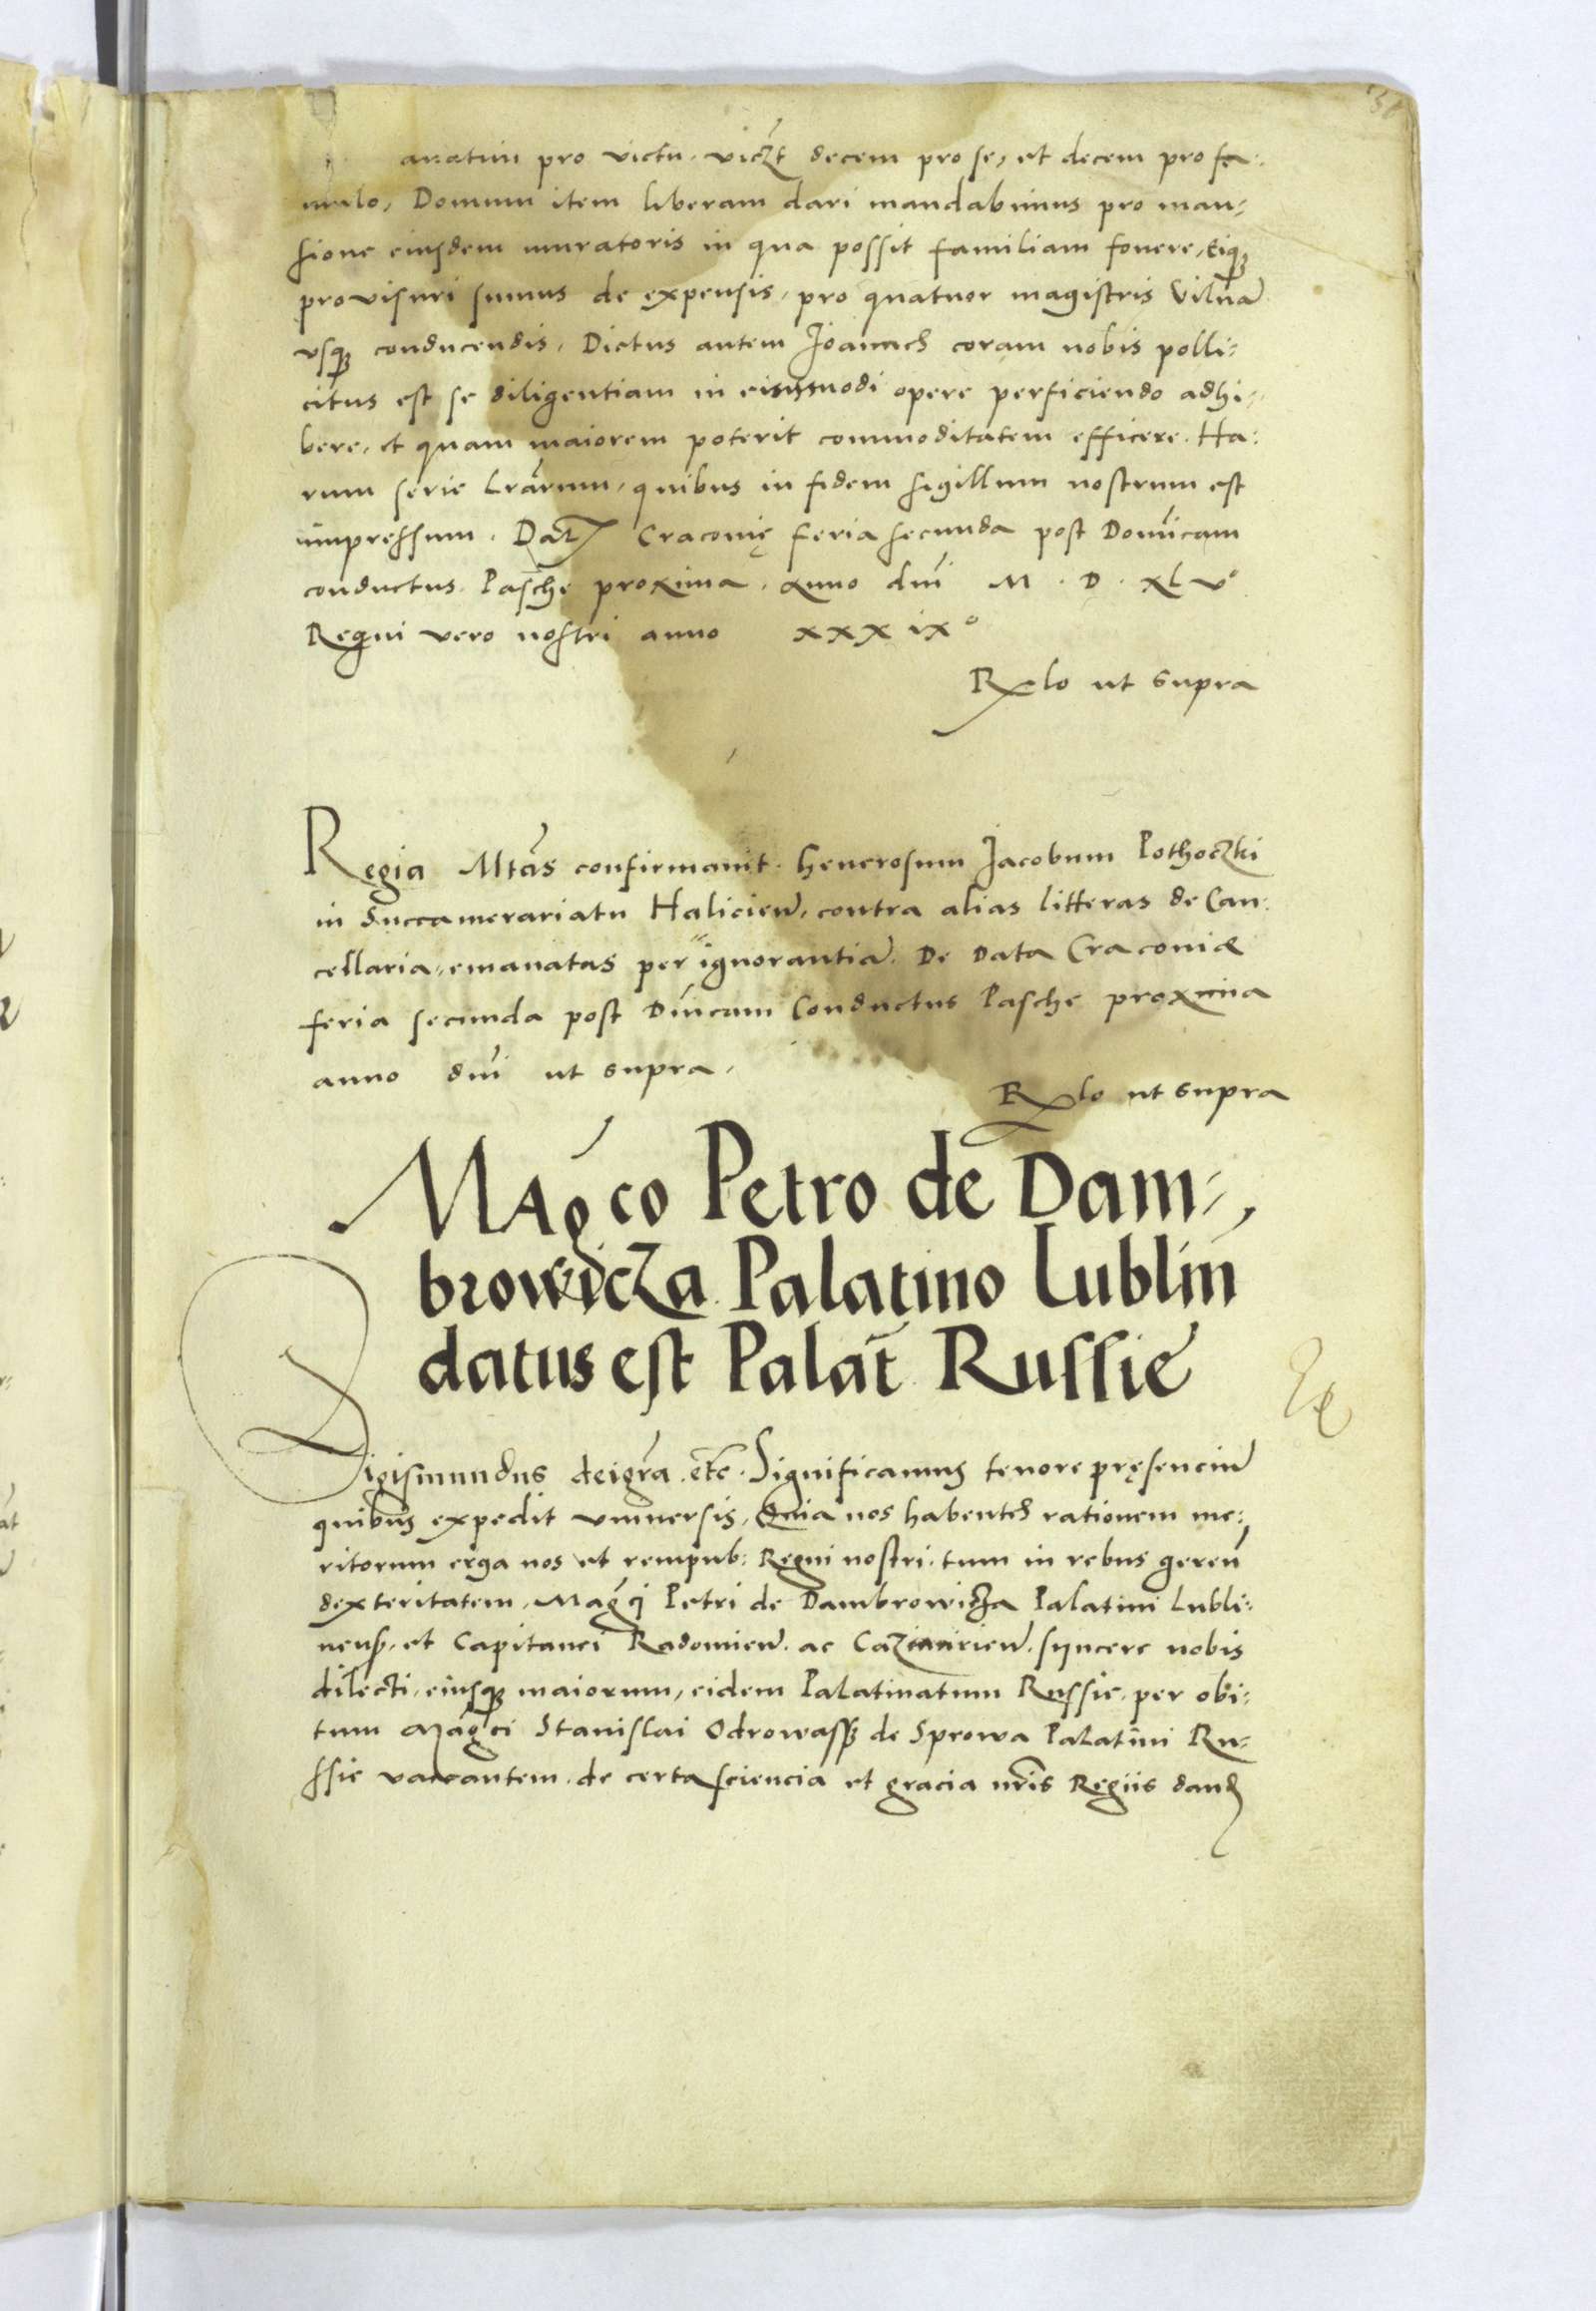 pro victu, viczt decem pro se, et decem pro fa:
mulo, Domum item liberam dari mandabimus pro man:
sione eiusdem muratoris in qua possit familiam fonere, Eiqz
provisuri sumus de expensis, pro quatuor magistris Vilnā
usqz conducendis. Dictus autem Joannes coram nobis polli:
citus est se diligentiam in eiusmodi opere perficiendo adhi:
bere, et quam maiorem poterit commoditatem efficere. Ha:
rum serie Lrārum, quibus in fidem sigillum nostrum est
impressum. Dat Cracovię feria secunda post Domīcam
conductus Pasche proxima, anno dnī M. D. XLVo
Regni vero nostri anno xxxixo
Rxlo ut supra
Regia Mtās confirmauit Generosum Jacobum Pothoczki
in Succamerariatu Halicień, contra alias litteras de Can:
cellaria emanatas per ignorantiā. De Data Cracoviæ
feria secunda post Dnīcam Conductus Pasche proxima
anno dnī ut supra.
Rxlo ut supra
Magco Petro de Dam:
browicza Palatino Lublin
datus est Palat Russie
Sigismundus dei grā etc. Significamus tenore pręsenciū
quibus expedit universis, Quia nos habentes rationem me:
ritorum erga nos et rempub: Regni nostri, tum in rebus gereń
dexteritatem, Magci Petri de Dambrowicza Palatini Lubli:
neń, et Capitanei Radomień. ac Cazimirień. syncere nobis
dilecti, eiusqz maiorum, eidem Palatinatum Russie, per obi:
tum Magci Stanislai Odrowassz de Sprowa Palatini Ru:
ssie vacantem, de certa sciencia et gracia nrīs Regiis dand